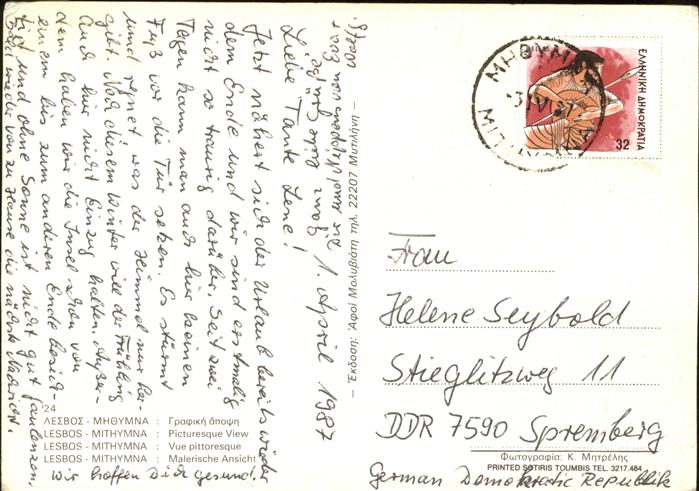 1. April 1987
Liebe Tante Lene!
Jetzt nähert sich der Urlaub bereits wieder
dem Ende und wir sind erstmalig
nicht so traurig darüber. Seit zwei
Tagen kann man auch hier keinen
Fuß vor die Tür setzen. Es stürmt
und regnet, was der Himmel nur her-
gibt. Nach diesem Winter will der Frühling
auch hier nicht Einzug halten. Außer-
dem haben wir die Insel schon von
einem bis zum anderen Ende besich-
tigt und ohne Sonne ist nicht gut faulenzen.
Bald wieder von zu Hause die nächste Nachricht.
Wir hoffen Dich gesund.
ganz liebe Grüße
von Ernst +
- Έκδοση: Αφοί Μολυβιάτη τηλ. 22207 Μυτιλήνη -
'24
ΛΕΣΒΟΣ - ΜΗΘΥΜΝΑ : Γραφική άποψη
LESBOS - MITHYMNA : Picturesque View
LESBOS - MITHYMNA : Vue pittoresque
LESBOS - MITHYMNA : Malerische Ansicht
ΕΛΛΗΝΙΚΗ ΔΗΜΟΚΡΑΤΙΑ
32
ΜΗΘΥΜΝΑ
Frau
Helene Seybold
Stieglitzweg 11
DDR 7590 Spremberg
Φωτογραφία: Κ. Μητρέλης
PRINTED SOTIRIS TOUMBIS TEL. 3217.484
German Democratic Republik